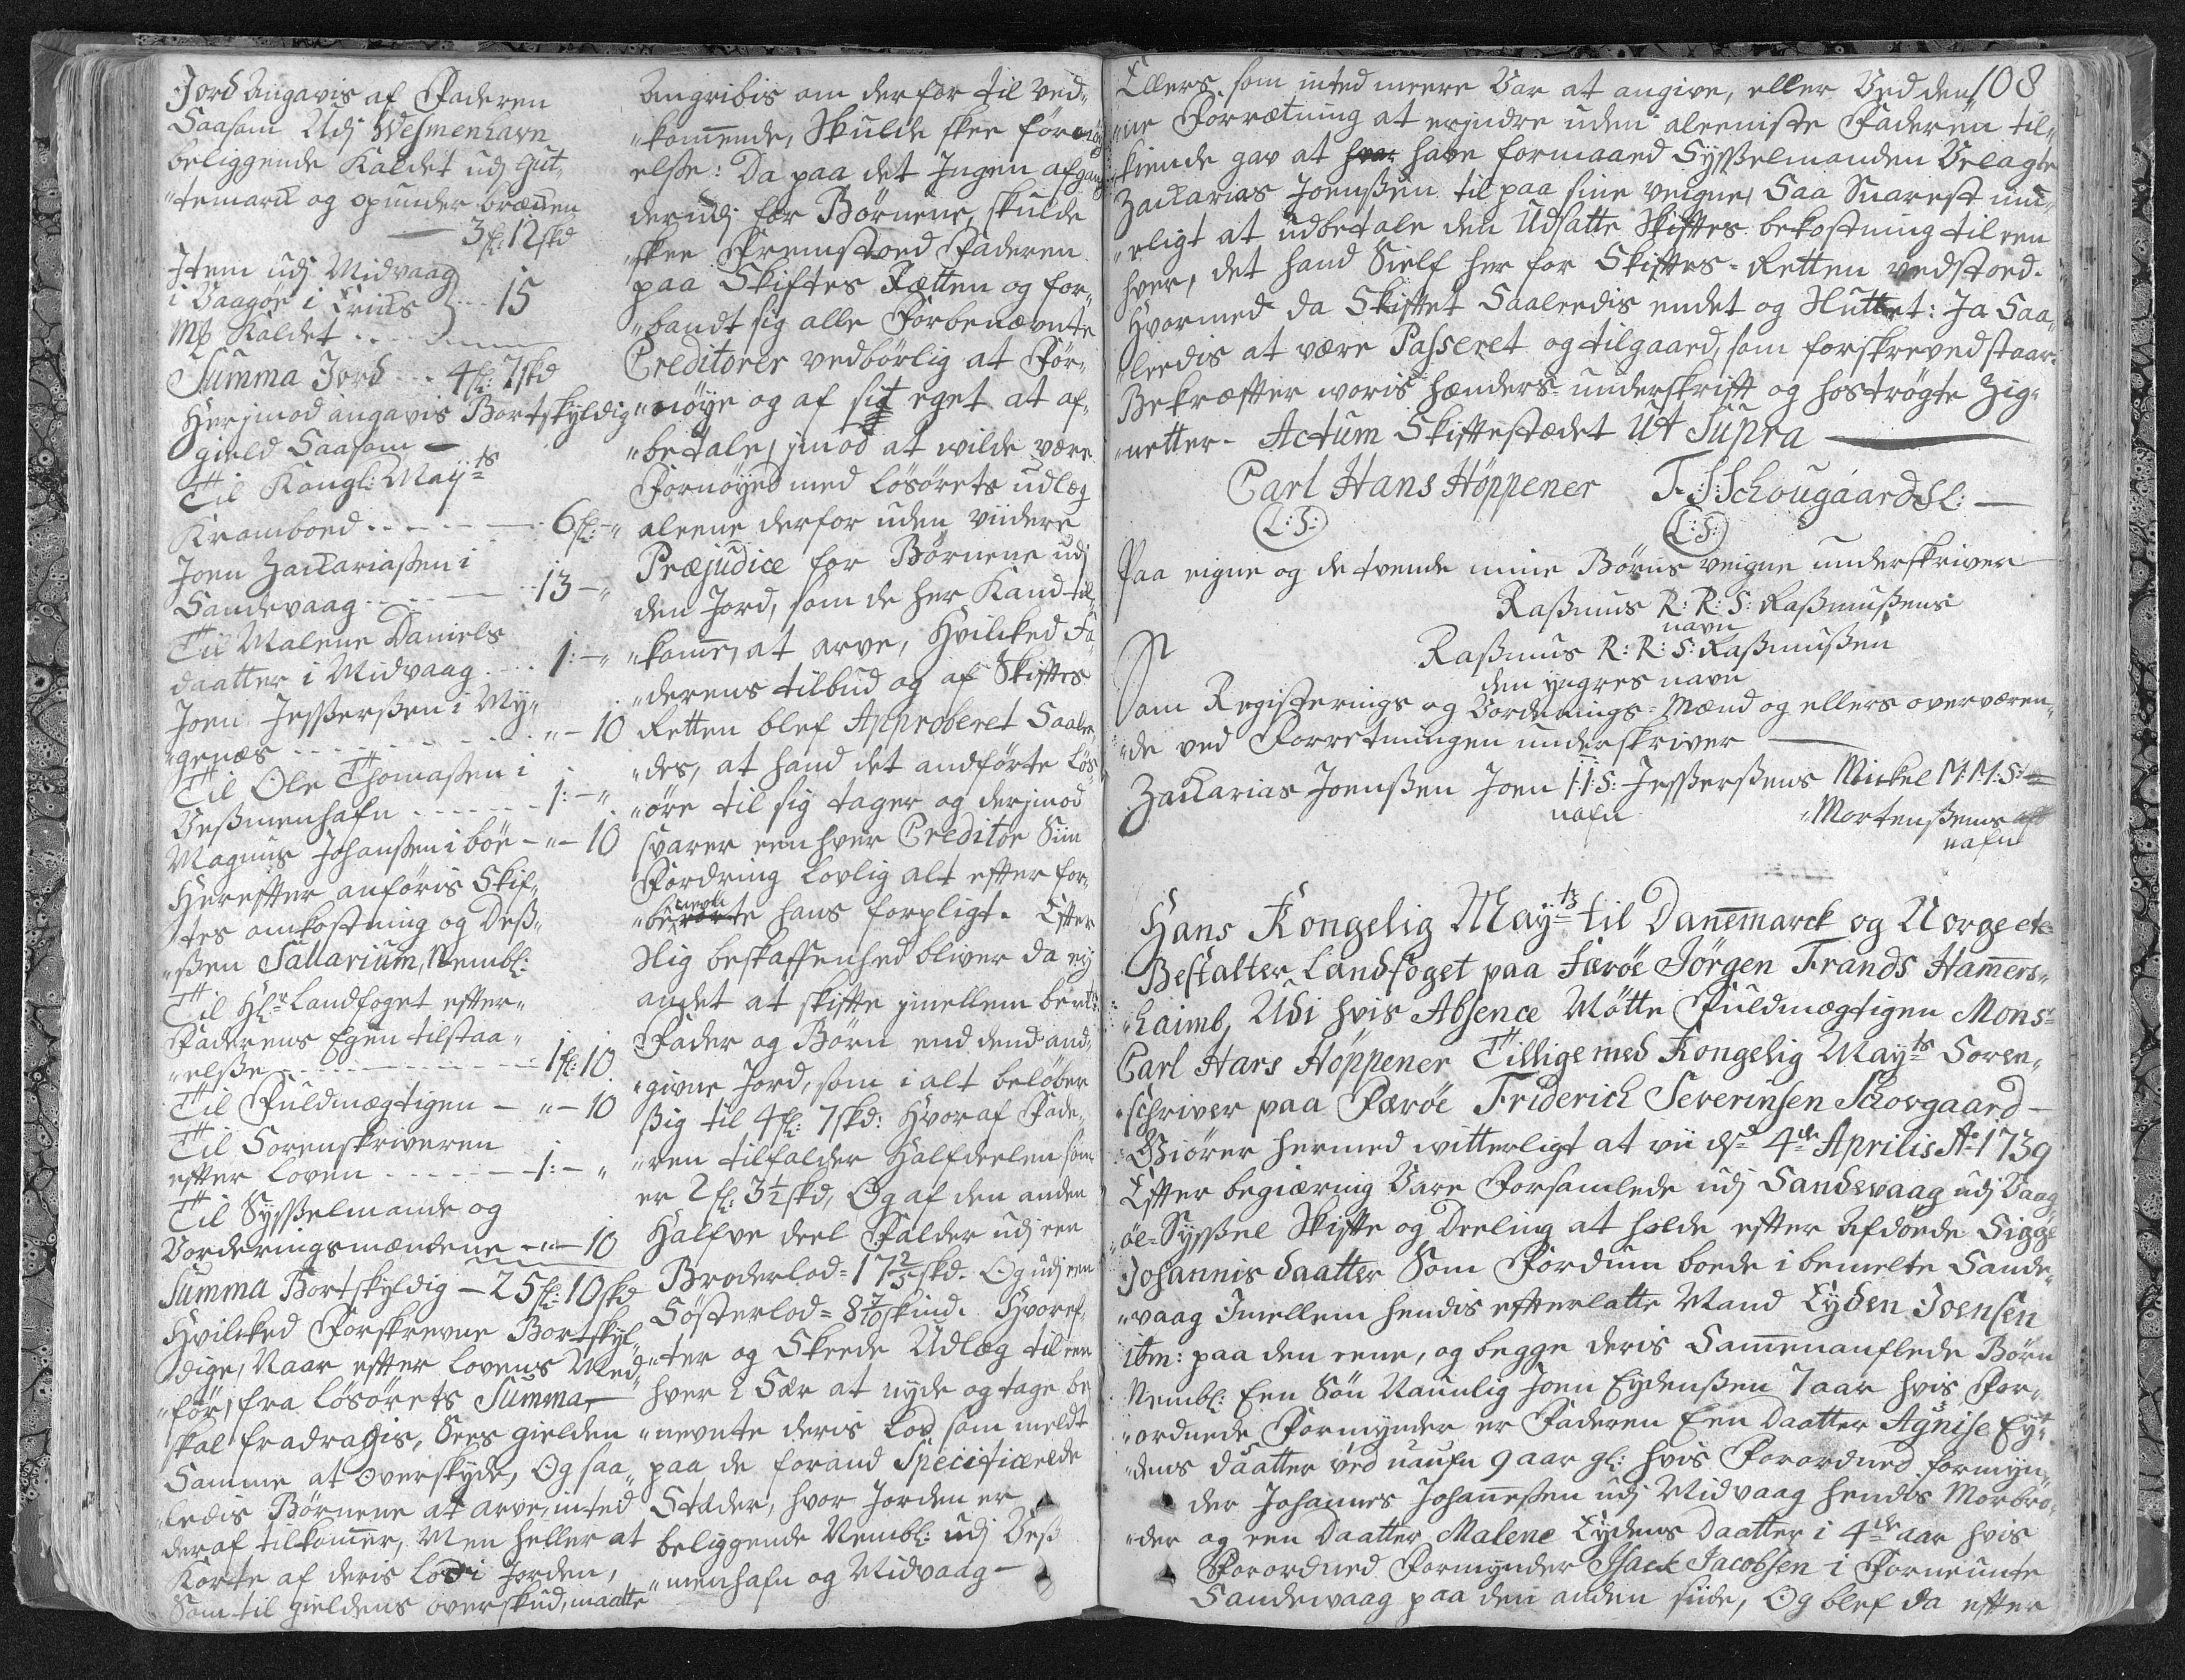 Jord Angavis af Faderen
Saasom Udj Wesmenhavn
beliggende Kaldet udj gut„
„temarck og opunder bræcken
— 3 fl: 12 skd
Jtem udj Midvaag
i Vaagöe i Criuss } ... 15
Mß Kaldet ....
Summa Jord ... 4 fl: 7 skd
Herjmod angavis Bortskyldig
gield Saasom —
Til Kongl: Mayts
Kramboed ..... — 6 fl: - „
Joen Zackariassen i
Sandevaag ..... 13 - „
Til Malene Daniels
daatter i Midvaag .... 1: - „
Joen Jesperssen i My„
„genæs ........ „ - 10
Til Ole Thomassen i
Vessmenhafn ...... 1: - „
Magnus Johanssen i böe - „ - 10
Herefter anföris Skif„
„tes omkostning og Dess„
„ssen Sallarium, Nembl:
Til Hl:r Landfoget efter„
Faderens Egen tilstaa„
„elsse ........ 1 fl: 10
Til Fuldmægtigen — „ - 10
Til Sorenskriveren
efter Loven ...... 1: - „
Til Sysselmande og
Vorderingsmændene - „ - 10
Summa Bortskyldig — 25 fl: 10 skd
Hvilcked Forskrevne Bortskyl„
dige, Naar efter Lovens Med„
„för, fra Lösörets Summa,
skal fradragis, Sees gielden
Samme at Overskyde, Og saa„
„ledis Börnene at arve, inted
deraf tilkommer, Men heller at
Korte af deris Lod i Jorden,
Som til gieldens overskud, maatte
Angribis om derfor til Ved„
„kommende, Skulde skee fornöy
elsse: Da paa det Ingen afgang
derudj for Börnene, skulde
„skee Fremstoed Faderen
paa Skiftes Rætten og for„
„bandt sig alle Forbenævnte
Creditorer vedbörlig at For„
„nöye og af sit eget at af„
„betale, jmod at wilde være
Fornöyed med Lösörets udlæg
aleene derfor uden viidere
Præjudice for Börnene udj
den Jord, som de her Kand til
„komme, at arve, Hvilcked Fa„
„derens tilbud og af Skiftes
Retten blef Approberet Saale„
„des, at hand det andförte lös„
„öre til sig tager og derjmod
svarer een hver Creditor Siin
Fordring Lovlig alt efter for„
„benevnte hans forpligt. Efter
Slig beskaffenhed bliver da ej
andet at skifte jmellem bemte:
Fader og Börn end dend and„
„givne Jord, som i alt belöber
ssig til 4 fl: 7 skd: Hvoraf Fade„
„ren tilfalder Halfdeelen som
er 2 fl: 3½ skd, Og af den anden
Halfve deel Falder udj een
Broderlod = 17⅖ skd. Og udj een
Sösterlod = 8 7/10 skind. Hvoref„
„ter og Skeede Udlæg til een
hver i Sær at nyde og tage be
„nevnte deris Lod, som meldt
paa de forand Specificeede
Stæder, hvor Jorden er
beliggende Nembl: udj Vess
„menhafn og Midvaag —
108
Ellers som inted meere Var at angive, eller Ved den„
„ne Forrætning at erjndre uden aleeniste Faderen til„
kiende gav at have formaaed Sysselmanden Velagte
Zackarias Joenssen til paa sine veigne, Saa Snarest mu„
„eligt at udbetale den Udsatte Skiftes bekostning til een
hver, det hand Sielf her for Skiftes-Retten vedstoed.
Hvormed da Skiftet Saaledis endet og Sluttet: Ja Saa„
„ledis at være Passeret og tilgaaed, som forskreved staar
Bekræfter woris hænders underskrift og hoströgte Zig„
„netter. Actum Skiftestædet Ut Supra —
Carl Hans Höppener F: S: Schougaard Sl: —
(L:S:) (L:S:)
Paa eigne og de tvende mine Börns veigne underskriver
Rassmus R: R: S: Rassmussens
navn
Rassmus R: R: S: Rassmussen
den yngres navn
Som Registerings og Vorderings-Mænd og ellers overværen„
„de ved Forretningen underskriver —
Zackarias Joenssen Joen I: I: S: Jesperssens Mickel M: M: S:
nafn „Mortenssens
nafn
Hans Kongelig Mayts til Danemarck og Norge etc
Bestalter Landfoget paa Færöe Jörgen Frands Hammers„
„haimb, Udi hvis Absence Mötte Fuldmægtigen Monsr
Carl Hans Höppener Tillige med Kongelig Mayts Soren„
„schriver paa Færöe Friderich Severinsen Schovgaard —
Giörer hermed witterligt at vii d: 4de Aprilis Ao 1739
Efter begiæring Vare Forsamlede udj Sandevaag udj Vaag„
„öe-Syssel Skifte og Deeling at holde efter Afdöede Sigge
Johannis daatter Som Fordum boede i bemelte Sande„
„vaag Imellem hendis efterlatte Mand Eyden Joensen
ibm: paa den eene, og begge deris Sammenauflede Börn
Nembl: Een Sön Naunlig Joen Eydenssen 7 aar hvis For„
„ordnede Formynder er Faderen Een Daatter Agnise Ey„
„dens daatter ved naufn 9 aar gl: hvis Forordned formyn„
der Johannes Johannessen udj Midvaag hendis Morbro„
„der og een Daatter Malene Eydens Daatter i 4de aar hvis
Forordned Formynder Isack Jacobsen i Forneunte
Sandevaag paa den anden siide, Og blef da efter